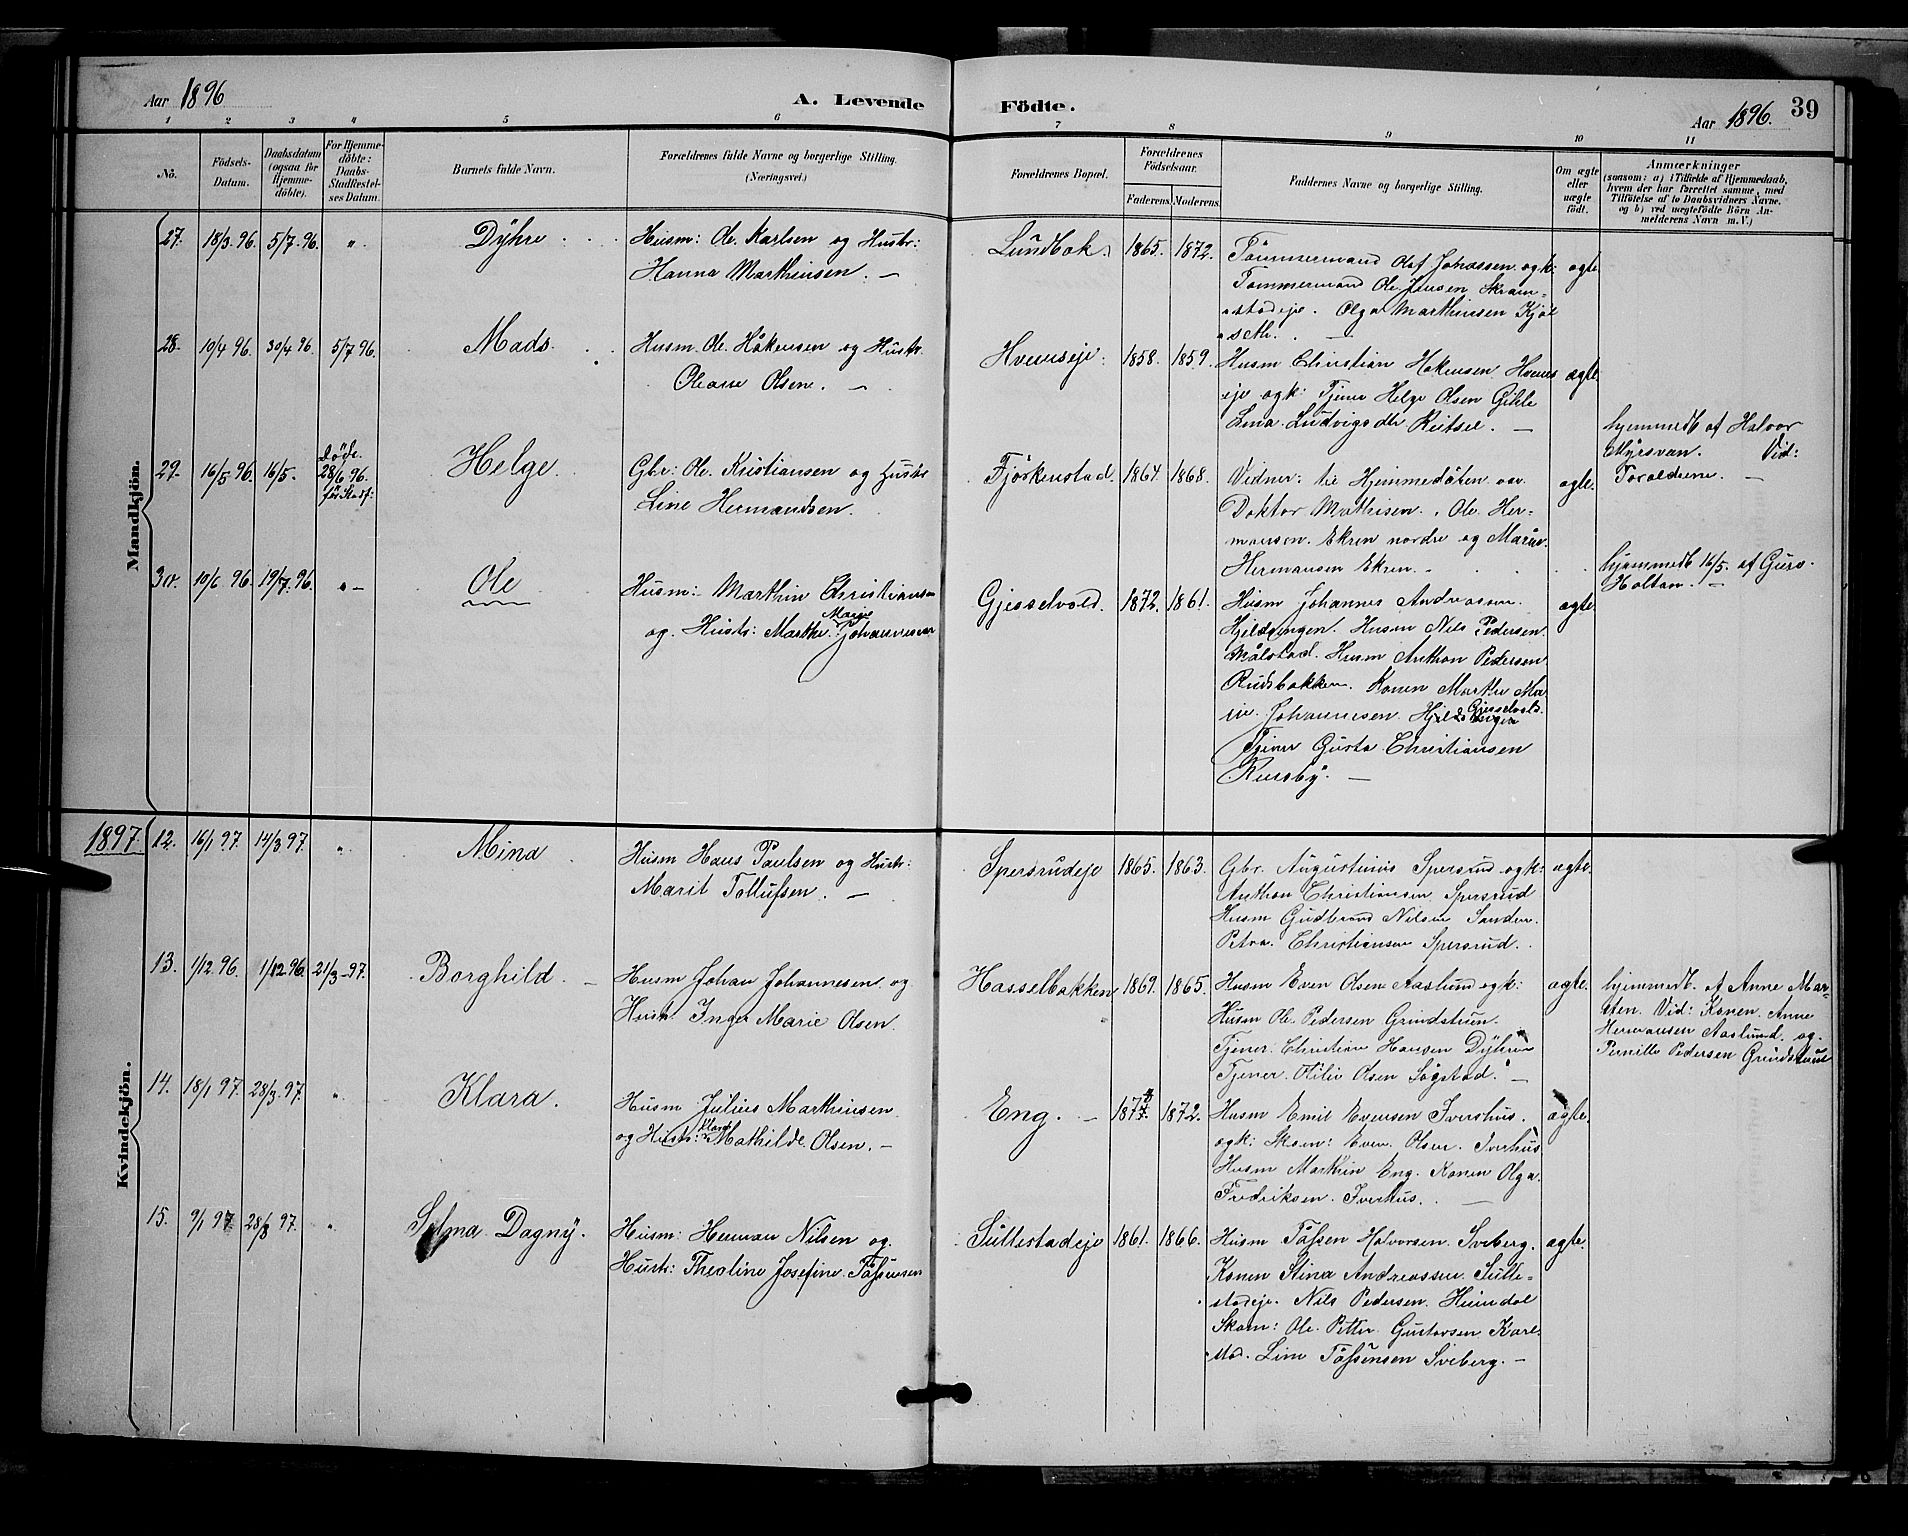 Aar 1896
A. Levende Födte.
Aar 1896. 39
1 2 3 4 5 6 7 8 9 10 11
No.
Födsels-
Datum.
Daabsdatum
(ogsaa for
Hjemme-
döbte).
For Hjemme-
döbte:
Daabs-
Stadfestel-
ses Datum.
Barnets fulde Navn.
Forældrenes fulde Navne og borgerlige Stilling.
(Næringsvei.)
Forældrenes Bopæl.
Forældrenes
Födselsaar.
Faderens. Moderens.
Faddernes Navne og borgerlige Stilling.
Om ægte
eller
uægte
födt.
Anmærkninger
(saasom: a) i Tilfælde af Hjemmedaab,
hvem der har forrettet samme, med
Tilföielse af to Daabsvidners Navne,
og b) ved uægtefödte Börn An-
melderens Navn m. V.)
Mandkjön.
27. 18/3 96. 5/7 96. „ Dyhre
Husm: Ole Karlsen og Hustr:
Hanna Marthinsen. —
Lundbak. 1865. 1872.
Tömmermand Olaf Johnssen. ogk:
Tömmermand Ole Jensen Skram-
stadeje. Olga Marthinsen Kjöl
seth. —
ægte
28. 10/4 96. 30/4 96. 5/7 96. Mads.
Husm. Ole Håkensen og Hustr.
Oleane Olsen. —
Hvemseje. 1858. 1859.
Husm Christian Hakensen Hvems
eje ogk: Tjener Helge Olsen Gihle
Lina Ludvigsdtr —
ægte.
hjemmedb af Halvor
Myrsvan. Vid:
Forældrene. —
29. 16/5 96. 16/5. Döde
28/6 96.
för Stadf:
Helge.
Gbr: Ole Kristiansen og Hustr
Line Hermandsen.
Fjörkenstad. 1864. 1868.
Vidner: til Hjemmedåben var
Doktor Mathisen. Ole Her-
mansen. Ekren nordre og
Hermansen Ekren.
ægte.
hjemmedb 16/5. af Guro
Holtan. —
30. 10/6 96. 19/7. 96. „— Ole
Husm: Marthin Christiansen
og Hustr: Marthe Marie Johannessen
Gjesselvold. 1872. 1861.
Husm Johannes Andreassen
Hjeldsengen. Husm Nils Pedersen
Målstad. Husm Anthon Pedersen
Rudsbakken. Konen Marthe Ma
rie Johannesen. Gjesselvold.
Tjener Gusta Christiansen
ægte
1897.
Kvindekjön.
12. 16/1 97. 14/3 97. „ Mina
Husm Hans Paulsen og Hustr:
Marit Tollufsen. —
Spersrudeje 1865. 1863.
Gbr. Augustinus Spersrud ogk:
Anthon Christiansen Spersrud
Husm Gudbrand Nilsen Sanden.
Petra Christiansen Spersrud.
ægte.
13. 1/12 96. 1/12 96. 21/3-97. Borghild. —
Husm Johan Johannesen og
Hustr. Inger Marie Olsen.
Hasselbakken 1869. 1865.
Husm Even Olsen Aaslund ogk:
Husm Ole Pedersen Grindstuen.
Tjener. Christian Hansen Dyhren
Tjener. Olsen Sögstad. —
ægte.
hjemmedb. af Anne Mar-
Vid: Konen Anne
Hermansen Aaslund. og
Pernille Pedersen Grindstuen
14. 18/1 97. 28/3 97. „ Klara.
Husm Julius Marthinsen
og Hustr: Klara Mathilde Olsen. —
Eng. — 1874 1872.
Husm Emil Evensen Ivershus.
ogk: Skom: Even Olsen Iverhus
Husm Marthin Eng. Konen Olga
Fredriksen. Iverhus. —
ægte.
15. 9/1 97 28/3 97. „ Selma Dagny.
Husm: Herman Nilsen og
Hustr: Theoline Josefine Tossensen
Sullestadeje 1861. 1866.
Husm Tossen Halvorsen. Sveberg.
Konen Stina Andreassen Sulle-
stadeje. Nils Pedersen. Heimdal
Skom: Ole Petter Gustavsen Karl
Line Tossensen Sveberg. —
ægte.